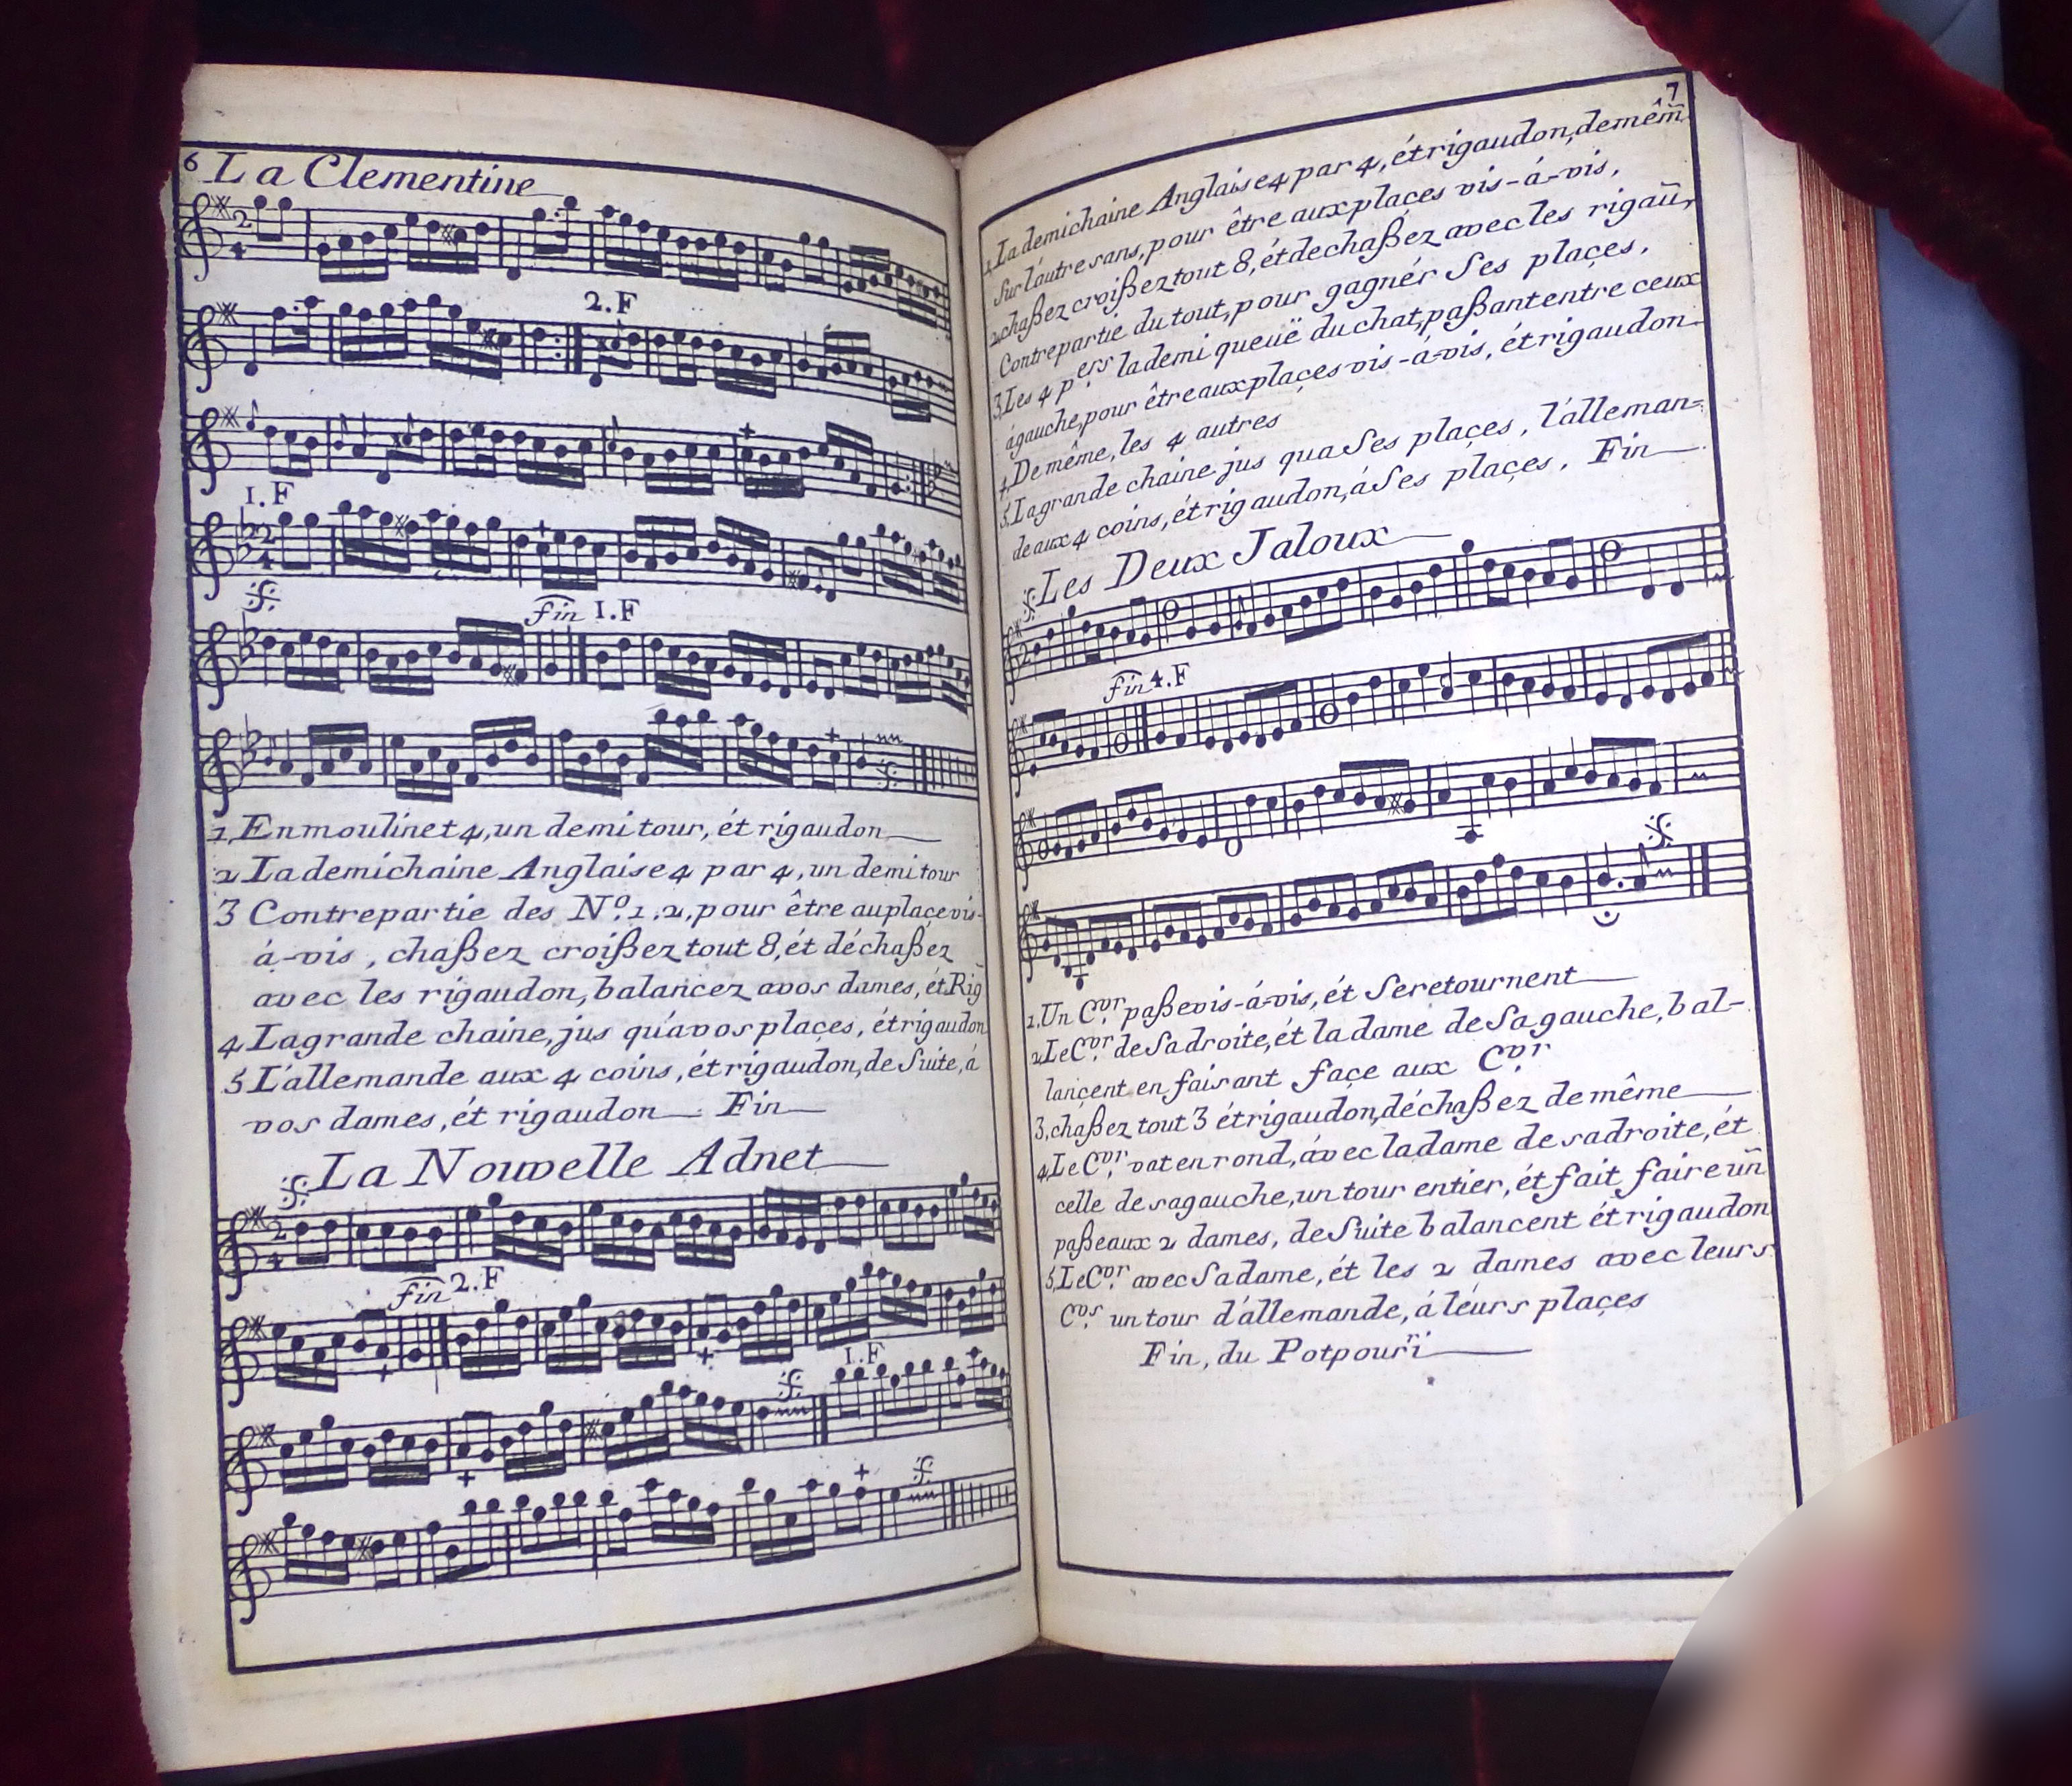 6 La Clementine
2.F
1.F
fin 1.F
1. En moulinet 4, un demi tour, ét rigaudon
2 La demi chaine Anglaise 4 par 4, un demi tour
3 Contrepartie des N.º 1, 2, pour être au plaçe vis-
á-vis, chaßez croißez tout 8, ét déchaßez
avec les rigaudon, balançez avos dames, ét Rig̃
4 La grande chaine, jus qu'avos plaçes, ét rigaudon
5 L'allemande aux 4 coins, ét rigaudon, de Suite, á
vos dames, ét rigaudon Fin
La Nouvelle Adnet
fin 2.F
1.F
7
1. La demi chaine Anglaise 4 par 4, ét rigaudon, de mêm̃
Sur l'autre sans, pour être aux plaçes vis-á-vis,
2. chaßez croißez tout 8, ét dechaßez avec les rigaũ,
Contrepartie du tout, pour gagnér Ses plaçes,
3. Les 4 p.ers la demi queuë du chat, paßant entre ceux
ágauche, pour être aux plaçes vis-á-vis, ét rigaudon
4. De même, les 4 autres
5. La grande chaine jus qua Ses plaçes, l'alleman=
de aux 4 coins, ét rigaudon, á Ses plaçes, Fin
Les Deux Jaloux
fin 4.F
1. Un C.vr paße vis-á-vis, ét Se retournent
2. Le C.vr de Sa droite, ét la dame de Sa gauche, bal-
lançent en faisant façe aux C.vr
3. chaßez tout 3 ét rigaudon, déchaßez de même
4. Le C.vr vat en rond, ávec la dame de sa droite, ét
celle de sa gauche, un tour entier, ét fait faire uñ
paße aux 2 dames, de Suite balancent ét rigaudon
5. Le C.vr avec Sa dame, ét les 2 dames avec leurs
C.vs un tour d'allemande, á léurs plaçes
Fin, du Potpouri